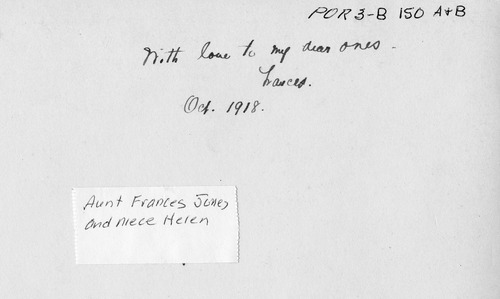 POR 3-B 150 A&B
With love to my dear ones -
Frances.
Oct. 1918.
Aunt Frances Jones
and niece Helen